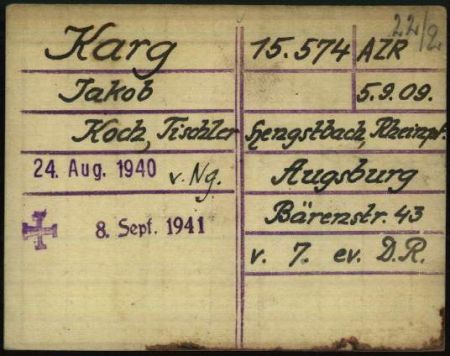 22/2
Karg 15.574 AZR
Jakob 5.9.09.
Koch, Tischler Hengstbach, Rheinpf.
24. Aug. 1940 v. Ng. Augsburg
8. Sept. 1941 Bärenstr. 43
v. 7. ev. D.R.